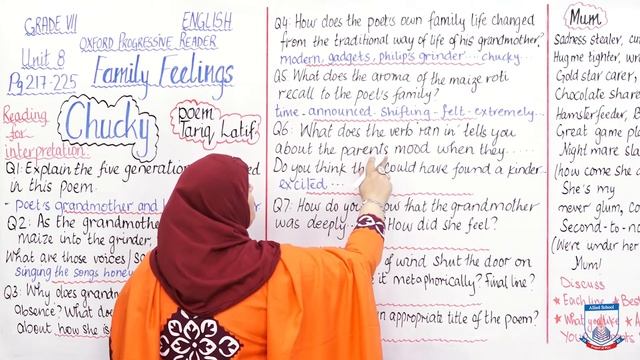 GRADE VII
ENGLISH
OXFORD PROGRESSIVE READER
Unit 8
Pg 217-225
Family Feelings
Reading for interpretation:
Chucky
poem
Tariq Latif
Q1: Explain the five generations
in this poem
- poet's grandmother and
Q2: As the grandmother
maize into the grinder,
What are those voices/
singing the songs
Q3: Why does
absence? What does
about how she is
Q4: How does the poet's own family life changed
from the traditional way of life of his grandmother?
modern, gadgets, philip's grinder... chucky
Q5 What does the aroma of the maize roti
recall to the poet's family?
time - announced - shifting - felt - extremely...
Q6: What does the verb 'ran in' tells you
about the parents mood when they.....
Do you think could have found a kinder
excited...
Q7: How do you know that the grandmother
was deeply... How did she feel?
of wind shut the door on
it metaphorically? Final line?
an appropriate title of the poem?
Mum
Sadness stealer,
Hug me tighter,
Gold star carer,
Chocolate share
Hamster feeder,
Great game pl
Night mare sla
(how come she
She's my
never glum, Co
Second-to-no
(Were under her
Mum!
Discuss
Each line
Bes
What you like
You
Allied School